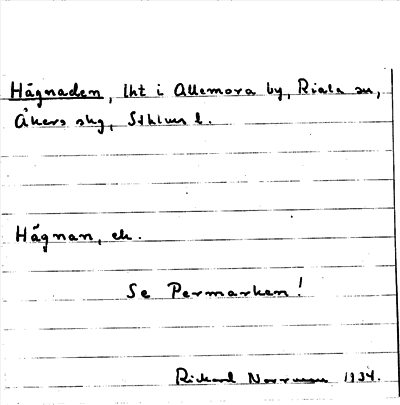 Hägnaden, lht i Allemora by, Riala sn,
Åkers skg, Sthlms l.
Hägnan, ek.
Se Permarken!
Rickard Norrman 1934.